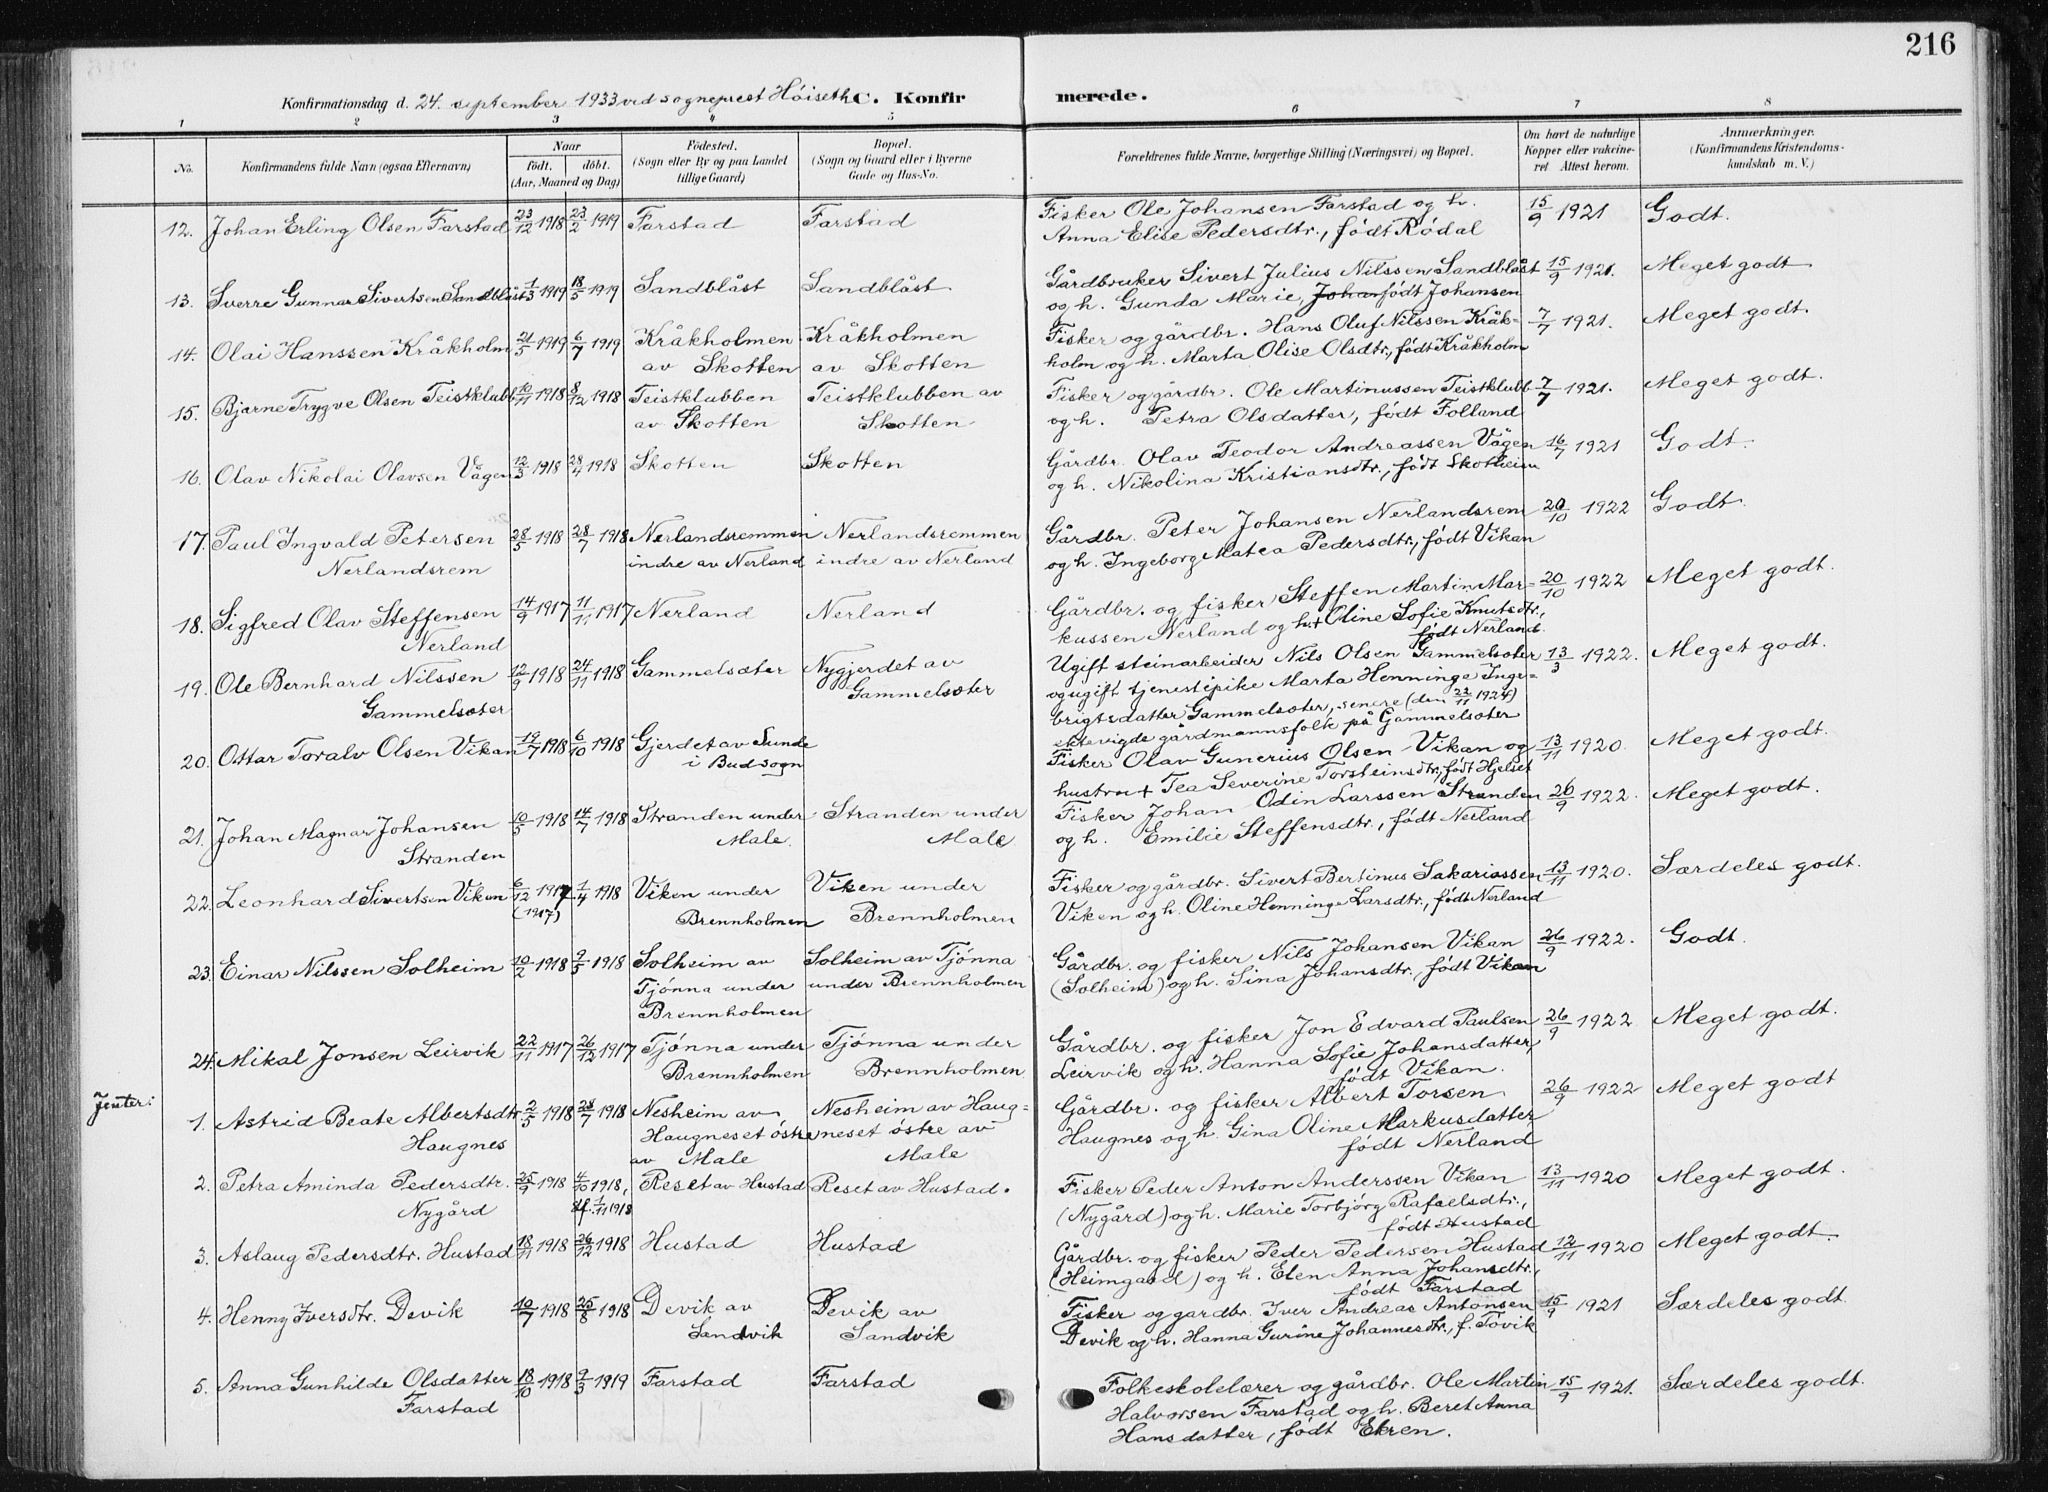 216
Konfirmationsdag d. 24. september 1933 ved sogneprest Höiseth C. Konfirmerede.
1 2 3 4 5 6 7 8
No. Konfirmandens fulde Navn (ogsaa Efternavn) Naar født. døbt. (Aar, Maaned og Dag) Fødested. (Sogn eller By og paa Landet tillige Gaard) Bopæl. (Sogn og Gaard eller i Byerne Gade og Hus-No. Forældrenes fulde Navne, borgerlige Stilling (Næringsvei) og Bopæl. Om havt de naturlige Kopper eller vakcineret. Attest herom. Anmærkninger. (Konfirmandens Kristendomskundskab m. V.)
12. Johan Erling Olsen Farstad 23/12 1918 23/2 1919 Farstad Farstad Fisker Ole Johansen Farstad og h. 15/9 1921 Godt.
Anna Elise Pedersdtr., født Rødal
13. Sverre Gunnar Sivertsen Sandblåst 1/3 1919 18/5 1919 Sandblåst Sandblåst Gårdbruker Sivert Julius Nilssen Sandblåst 15/9 1921. Meget godt
og h. Gunda Marie, Johan født Johansen
14. Olai Hanssen Kråkholm 21/5 1919 6/7 1919 Kråkholmen Kråkholmen Fisker og gårdbr. Hans Oluf Nilssen Kråk- 7/7 1921. Meget godt.
av Skotten av Skotten holm og h. Marta Olise Olsdtr., født Kråkholm
15. Bjarne Trygve Olsen Teistklubb 10/11 1918 8/12 1918 Teistklubben Teistklubben av Fisker og gårdbr. Ole Martinussen Teistklubb 7/7 1921. Meget godt.
av Skotten Skotten og h. Petra Olsdatter, født Folland
16. Olav Nikolai Olavsen Vågen 12/3 1918 28/4 1918 Skotten Skotten Gårdbr. Olav Teodor Andreassen Vågen 16/7 1921 Godt.
og h. Nikolina Kristiansdtr., født Skotheim
17. Paul Ingvald Petersen 28/5 1918 28/7 1918 Nerlandsremmen Nerlandsremmen Gårdbr. Peter Johansen Nerlandsrem 20/10 1922 Godt.
Nerlandsrem indre av Nerland indre av Nerland og h. Ingeborg Matea Pedersdtr., født Vikan
18. Sigfred Olav Steffensen 14/9 1917 11/11 1917 Nerland Nerland Gårdbr. og fisker Steffen Martin Mar- 20/10 1922 Meget godt.
Nerland kussen Nerland og h.+ Oline Sofie Knutsdtr.,
født Nerland.
19. Ole Bernhard Nilssen 12/9 1918 24/11 1918 Gammelsæter Nygjerdet av Ugift steinarbeider Nils Olsen Gammelsæter 13/3 1922. Meget godt.
Gammelsæter Gammelsæter og ugift tjenestepike Marta Henninge Inge-
brigtsdatter Gammelsæter, senere (den 23/11 1924)
ektevigde gårdmannsfolk på Gammelsæter
20. Ottar Toralv Olsen Vikan 19/7 1918 6/10 1918 Gjerdet av Sunde Fisker Olav Gunerius Olsen Vikan og 13/11 1920. Meget godt.
i Bud sogn hustru + Tea Severine Torsteinsdtr., født Hjelset
21. Johan Magnar Johansen 10/5 1918 14/7 1918 Stranden under Stranden under Fisker Johan Odin Larssen Stranden 26/9 1922. Meget godt.
Stranden Male. Male og h. Emilie Steffensdtr., født Nerland
22. Leonhard Sivertsen Viken 6/12 1917 1/4 1918 Viken under Viken under Fisker og gårdbr. Sivert Bertinus Sakariassen 13/11 1920. Særdeles godt.
(1917) Brennholmen Brennholmen Viken og h. Oline Henninge Larsdtr., født Nerland
23. Einar Nilssen Solheim 10/2 1918 9/5 1918 Solheim av Solheim av Tjønna Gårdbr. og fisker Nils Johansen Vikan 26/9 1922. Godt.
Tjønna under under Brennholmen (Solheim) og h. Sina Johansdtr., født Vikan
Brennholmen
24. Mikal Jonsen Leirvik 22/11 1917 26/12 1917 Tjønna under Tjønna under Gårdbr. og fisker Jon Edvard Paulsen 26/9 1922 Meget godt.
Brennholmen Brennholmen Leirvik og h. Hanna Sofie Johansdatter,
født Vikan.
Jenter:
1. Astrid Beate Albertsdtr. 2/5 1918 28/7 1918 Nesheim av Nesheim av Haug= Gårdbr. og fisker Albert Torsen 26/9 1922 Meget godt
Haugnes Haugneset østre neset østre av Haugnes og h. Gina Oline Markusdatter,
av Male Male født Nerland
2. Petra Aminda Pedersdtr. 25/9 1918 4/10 1918, Reset av Hustad Reset av Hustad. Fisker Peder Anton Anderssen Vikan 13/11 1920 Meget godt.
Nygård st. 1/11 1918 (Nygård) og h. Marie Torbjørg Rafaelsdtr.,
født Hustad
3. Aslaug Pedersdtr. Hustad 18/11 1918 26/12 1918 Hustad Hustad Gårdbr. og fisker Peder Pedersen Hustad 12/11 1920 Meget godt.
(Heimgard) og h. Elen Anna Johansdtr.,
født Farstad
4. Henny Iversdtr. Devik 10/7 1918 25/8 1918 Devik av Devik av Fisker og gardbr. Iver Andreas Antonsen 15/9 1921 Særdeles godt.
Sandvik Sandvik Devik og h. Hanna Gurine Johannesdtr., f. Tøvik
5. Anna Gunhilde Olsdatter 18/10 1918 9/3 1919 Farstad Farstad Folkeskolelærer og gårdbr. Ole Martin 15/9 1921. Særdeles godt.
Farstad Halvorsen Farstad og h. Beret Anna
Hansdatter, født Ekren.